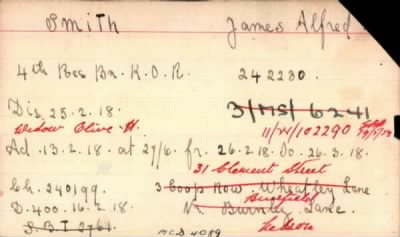 Smith James Alfred
4th Res Bn. K.O.R. 242230.
Dis. 25.2.18. 3/MS/6241
Widow Olive H. 11/W/102290
Ad. 13.2.18. at 27/6. fr. 26.2.18. to. 26.3.18.
31 Clement Street
Ch. 240199. 3 Coop Row. Wheatley Lane
D.400. 16.2.18. Nr. Burnley Lanc.
S.B.I 2761. MCS 4089